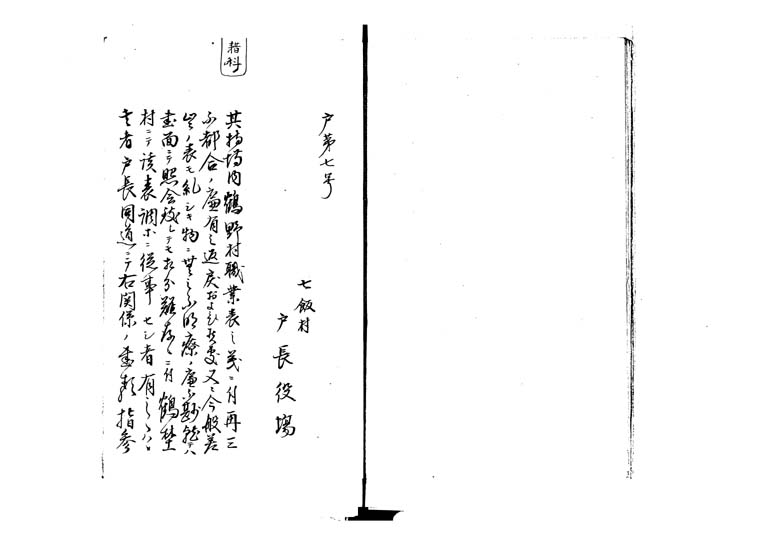 戸第七号
七飯村
戸長役場
其持場内鶴野村職業表之義ニ付再三
不都合ノ廉有之返戻およひ候処又々今般差
出ノ表モ糺シキ物ニ無之不明瞭ノ廉不尠就テハ
書面ニテ照会致シテモ相分難存候ニ付鶴野
村ニテ該表調方ニ従事セシ者有之候ハヽ
其者戸長同道ニテ右関係ノ書類指参